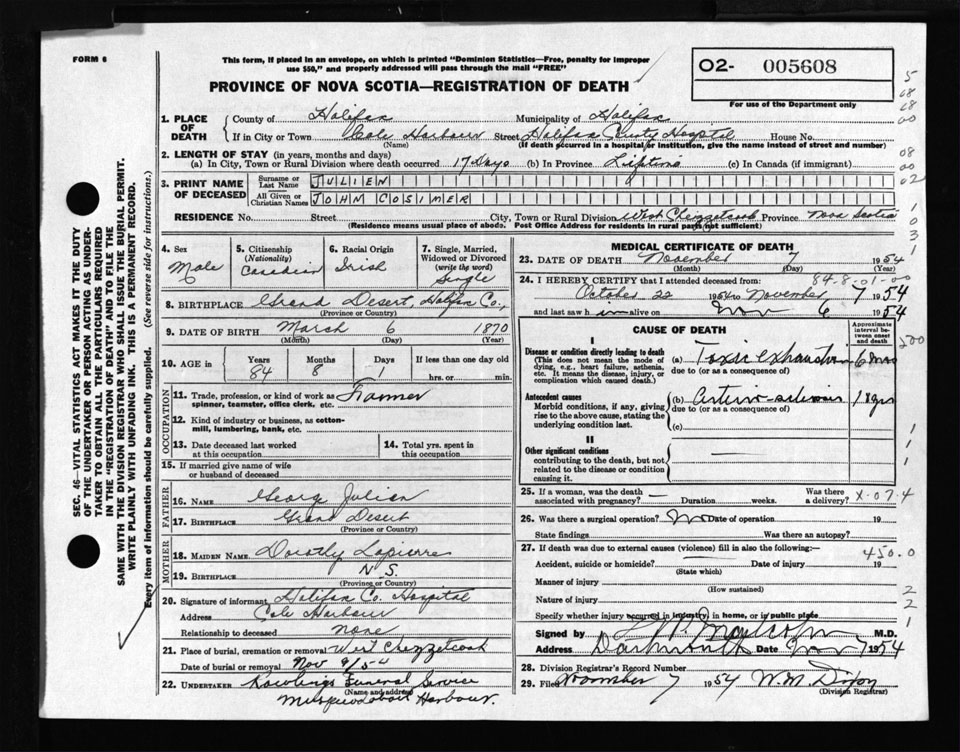 FORM 6
This form, if placed in an envelope, on which is printed "Dominion Statistics—Free, penalty for improper
use $50," and properly addressed will pass through the mail "FREE"
PROVINCE OF NOVA SCOTIA—REGISTRATION OF DEATH
O2- 005608
For use of the Department only
1. PLACE OF DEATH
County of Halifax Municipality of Halifax
If in City or Town Cole Harbour Street Halifax County Hospital House No.
(Name) (If death occurred in a hospital or institution, give the name instead of street and number)
2. LENGTH OF STAY (in years, months and days)
(a) In City, Town or Rural Division where death occurred 17 Days (b) In Province Lifetime (c) In Canada (if immigrant)
3. PRINT NAME OF DECEASED
Surname or Last Name JULIEN
All Given or Christian Names JOHN COSIMER
RESIDENCE No. Street City, Town or Rural Division West Chezzetcook Province Nova Scotia
(Residence means usual place of abode. Post Office Address for residents in rural parts not sufficient)
4. Sex Male
5. Citizenship (Nationality) Canadian
6. Racial Origin Irish
7. Single, Married, Widowed or Divorced (write the word) Single
8. BIRTHPLACE Grand Desert, Halifax Co.,
(Province or Country)
9. DATE OF BIRTH March 6 1870
(Month) (Day) (Year)
10. AGE in Years 84 Months 8 Days 1 If less than one day old hrs. or min.
OCCUPATION
11. Trade, profession, or kind of work as spinner, teamster, office clerk, etc. Farmer
12. Kind of industry or business, as cotton-mill, lumbering, bank, etc.
13. Date deceased last worked at this occupation
14. Total yrs. spent in this occupation
15. If married give name of wife or husband of deceased
FATHER
16. NAME Georg Julien
17. BIRTHPLACE Grand Desert
(Province or Country)
MOTHER
18. MAIDEN NAME Dorothy Lapierre
19. BIRTHPLACE N.S.
(Province or Country)
20. Signature of informant Halifax Co. Hospital
Address Cole Harbour
Relationship to deceased none
21. Place of burial, cremation or removal West Chezzetcook
Date of burial or removal Nov 9/54
22. UNDERTAKER Rawlings Funeral Service
(Name and address)
Musquodoboit Harbour.
MEDICAL CERTIFICATE OF DEATH
23. DATE OF DEATH November 7 1954
(Month) (Day) (Year)
84-8-01-00
24. I HEREBY CERTIFY that I attended deceased from:
October 22 1954 to November 7 1954
and last saw h im alive on Nov 6 1954
CAUSE OF DEATH
Approximate interval between onset and death
I
Disease or condition directly leading to death
(This does not mean the mode of dying, e.g., heart failure, asthenia, etc. It means the disease, injury, or complication which caused death.)
(a) Toxic exhaustion 6 mos
due to (or as a consequence of)
Antecedent causes
Morbid conditions, if any, giving rise to the above cause, stating the underlying condition last.
(b)
due to (or as a consequence of)
(c)
II
Other significant conditions
contributing to the death, but not related to the disease or condition causing it.
25. If a woman, was the death associated with pregnancy? — Duration weeks. Was there a delivery? X-07-4
26. Was there a surgical operation? No Date of operation 19
State findings Was there an autopsy?
27. If death was due to external causes (violence) fill in also the following:—
450.0
Accident, suicide or homicide? Date of injury 19
(State which)
Manner of injury
(How sustained)
Nature of injury
Specify whether injury occurred in industry, in home, or in public place
Signed by Malcolm M.D.
Address Dartmouth Date Nov 7 1954
28. Division Registrar's Record Number
29. Filed November 7 1954 W. M. Dixon
(Division Registrar)
SEC. 46—VITAL STATISTICS ACT MAKES IT THE DUTY
OF THE UNDERTAKER OR PERSON ACTING AS UNDER-
TAKER TO OBTAIN ALL THE PARTICULARS REQUIRED
IN THE "REGISTRATION OF DEATH" AND TO FILE THE
SAME WITH THE DIVISION REGISTRAR WHO SHALL ISSUE THE BURIAL PERMIT.
WRITE PLAINLY WITH UNFADING INK. THIS IS A PERMANENT RECORD.
Every item of information should be carefully supplied. (See reverse side for instructions.)